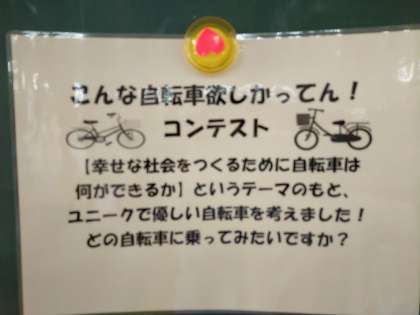 こんな自転車欲しかってん！
コンテスト
【幸せな社会をつくるために自転車は
何ができるか】というテーマのもと、
ユニークで優しい自転車を考えました！
どの自転車に乗ってみたいですか？